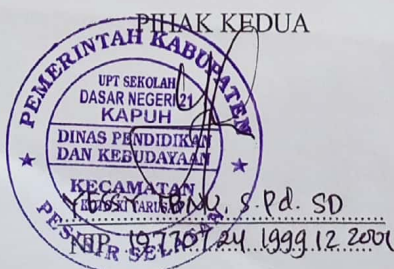 PIHAK KEDUA
PEMERINTAH KABUPATEN
UPT SEKOLAH
DASAR NEGERI 21
KAPUH
DINAS PENDIDIKAN
DAN KEBUDAYAAN
KECAMATAN
KOTO XI TARUSAN
PESISIR SELATAN
S.Pd. SD
NIP. 19770724 1999 12 2001